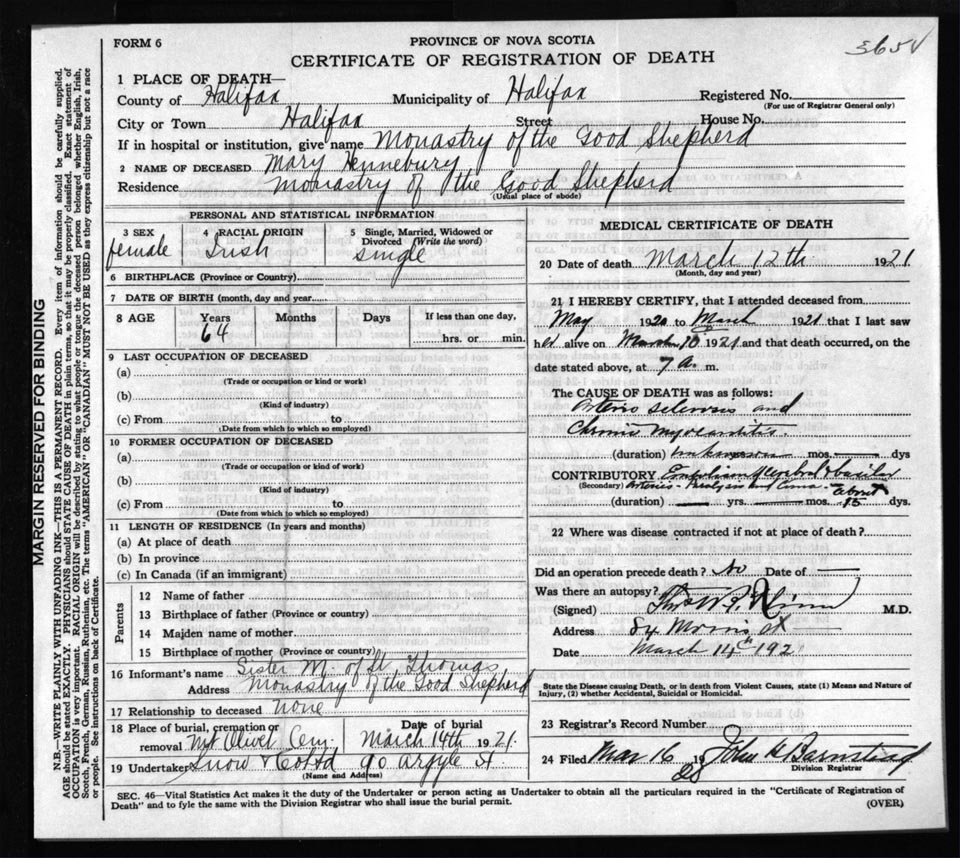 FORM 6
PROVINCE OF NOVA SCOTIA
CERTIFICATE OF REGISTRATION OF DEATH
365
1 PLACE OF DEATH—
County of Halifax Municipality of Halifax Registered No.
(For use of Registrar General only)
City or Town Halifax Street House No.
If in hospital or institution, give name Monastry of the Good Shepherd
2 NAME OF DECEASED Mary Hennebury
Residence Monastry of the Good Shepherd
(Usual place of abode)
PERSONAL AND STATISTICAL INFORMATION
3 SEX female
4 RACIAL ORIGIN Irish
5 Single, Married, Widowed or Divorced (Write the word) single
6 BIRTHPLACE (Province or Country)
7 DATE OF BIRTH (month, day and year
8 AGE Years 64 Months Days If less than one day, hrs. or min.
9 LAST OCCUPATION OF DECEASED
(a)
(Trade or occupation or kind or work)
(b)
(Kind of industry)
(c) From to
(Date from which to which so employed)
10 FORMER OCCUPATION OF DECEASED
(a)
(Trade or occupation or kind of work)
(b)
(Kind of industry)
(c) From to
(Date from which to which so employed)
11 LENGTH OF RESIDENCE (In years and months)
(a) At place of death
(b) In province
(c) In Canada (if an immigrant)
Parents
12 Name of father
13 Birthplace of father (Province or country)
14 Maiden name of mother
15 Birthplace of mother (Province or country)
16 Informant's name Sister M. of St. Thomas
Address Monastry of the Good Shepherd
17 Relationship to deceased none
18 Place of burial, cremation or removal Mt Olivet Cem. Date of burial March 14th 1921.
19 Undertaker Snow & 90 Argyle St
(Name and Address)
MEDICAL CERTIFICATE OF DEATH
20 Date of death March 12th 1921
(Month, day and year)
21 I HEREBY CERTIFY, that I attended deceased from
May 1920 to March 1921 that I last saw
her alive on March 10 1921 and that death occurred, on the
date stated above, at 7 a. m.
The CAUSE OF DEATH was as follows:
Arterio sclerosis and
Chronic myocarditis.
(duration) unknown mos. dys.
CONTRIBUTORY Embolism Cerebral & basilar
(Secondary) Arteries - Paralysis and Coma about
(duration) yrs. mos. 15 dys.
22 Where was disease contracted if not at place of death?
Did an operation precede death? No Date of
Was there an autopsy?
(Signed) M.D.
Address 84 Morris St
Date March 14th 192
State the Disease causing Death, or in death from Violent Causes, state (1) Means and Nature of
Injury, (2) whether Accidental, Suicidal or Homicidal.
23 Registrar's Record Number
24 Filed Mar 16 19 John
Division Registrar
SEC. 46—Vital Statistics Act makes it the duty of the Undertaker or person acting as Undertaker to obtain all the particulars required in the "Certificate of Registration of
Death" and to fyle the same with the Division Registrar who shall issue the burial permit.
(OVER)
MARGIN RESERVED FOR BINDING
N.B.—WRITE PLAINLY WITH UNFADING INK—THIS IS A PERMANENT RECORD. Every item of information should be carefully supplied.
AGE should be stated EXACTLY. PHYSICIANS should STATE CAUSE OF DEATH in plain terms, so that it may be properly classified. Exact statement of
OCCUPATION is very important. RACIAL ORIGIN will be described by stating to what people or tongue the deceased person belonged whether English, Irish,
Scotch, French, German, Russian, Ruthenian, etc. The terms "AMERICAN" OR "CANADIAN" MUST NOT BE USED as they express citizenship but not a race
or people. See instructions on back of Certificate.